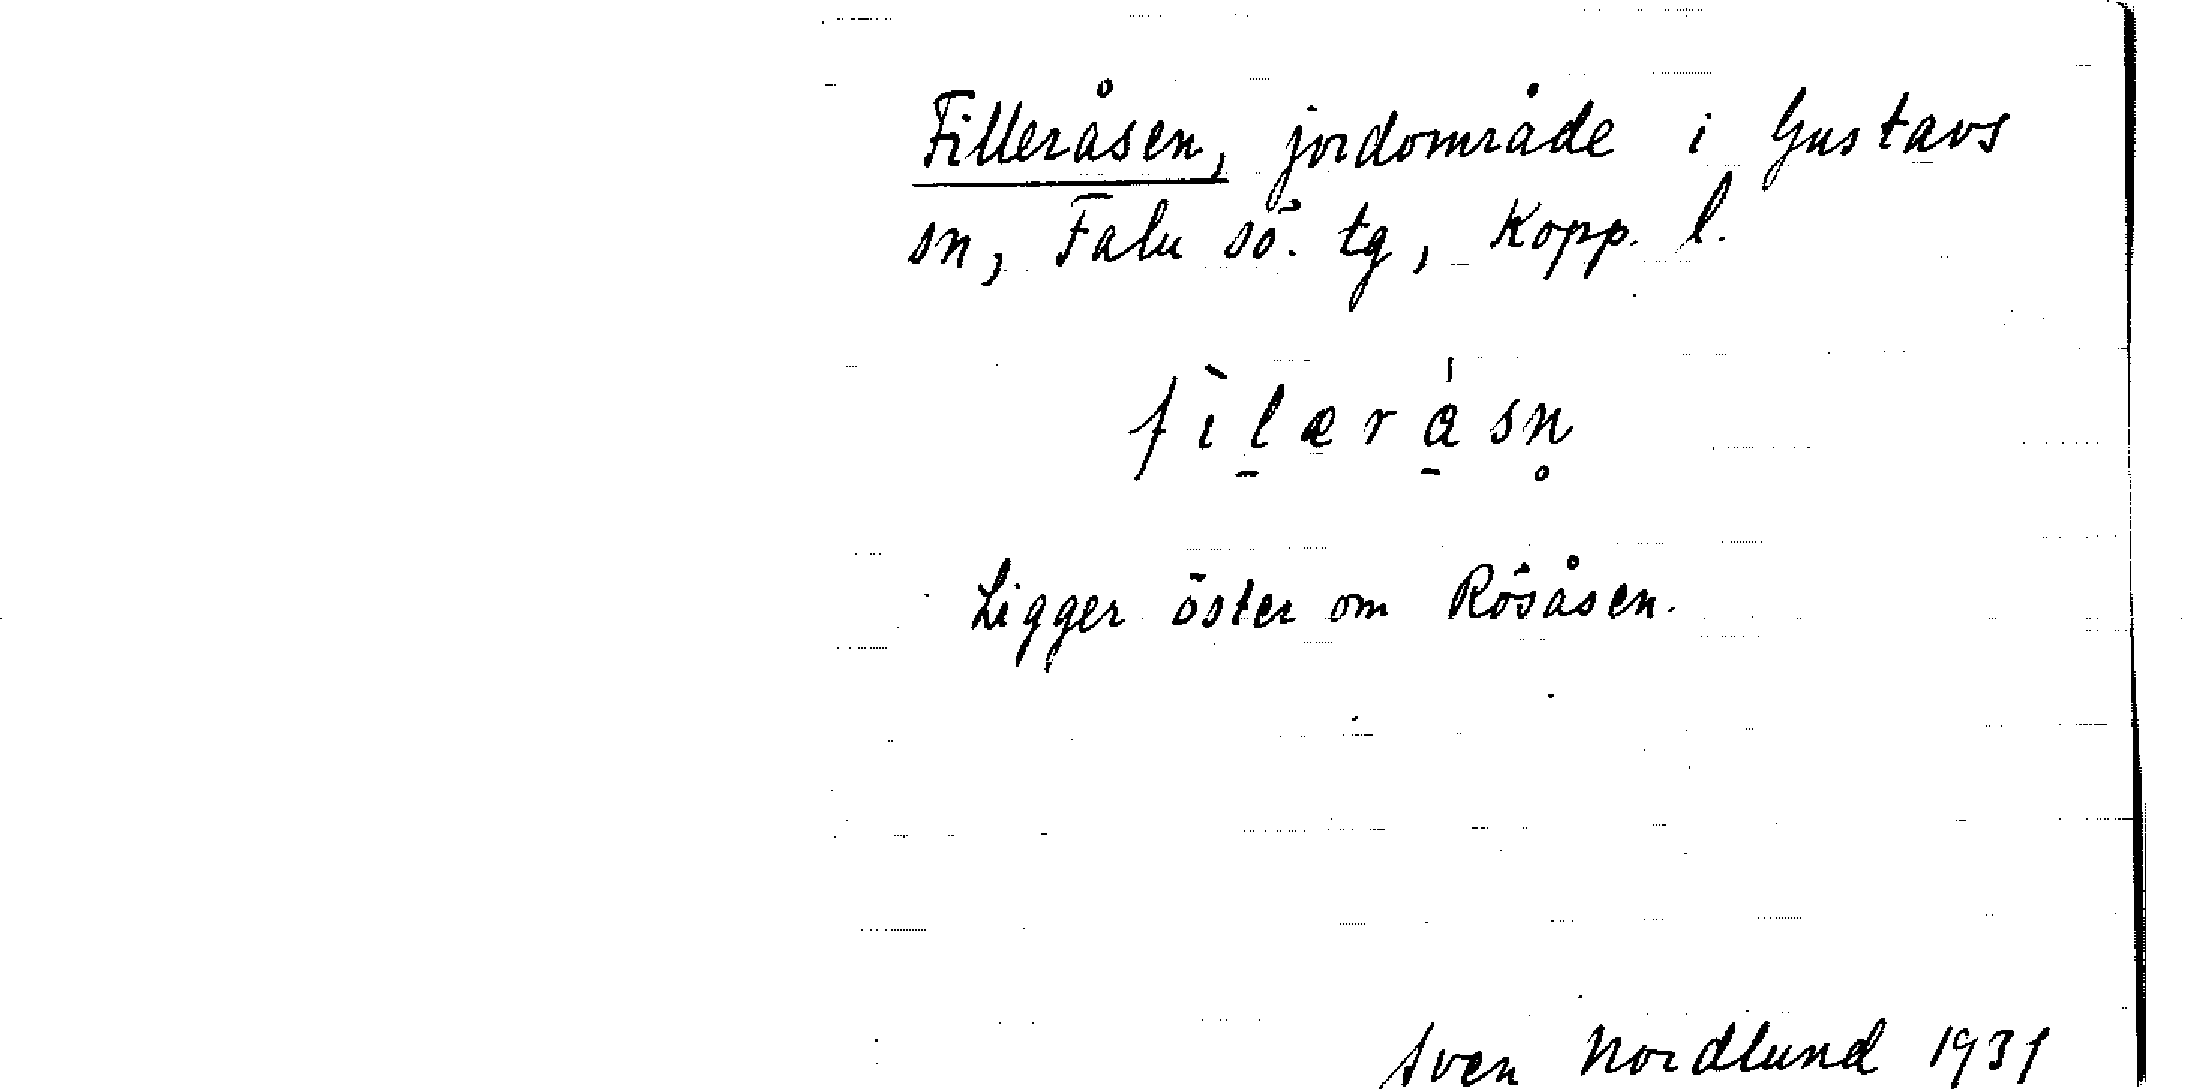 Filleråsen, jordområde i Gustavs
sn, Falu sö. tg, Kopp. l.
fìl̠æra̠̍sn̥
Ligger öster om Rösåsen.
Sven Nordlund 1931